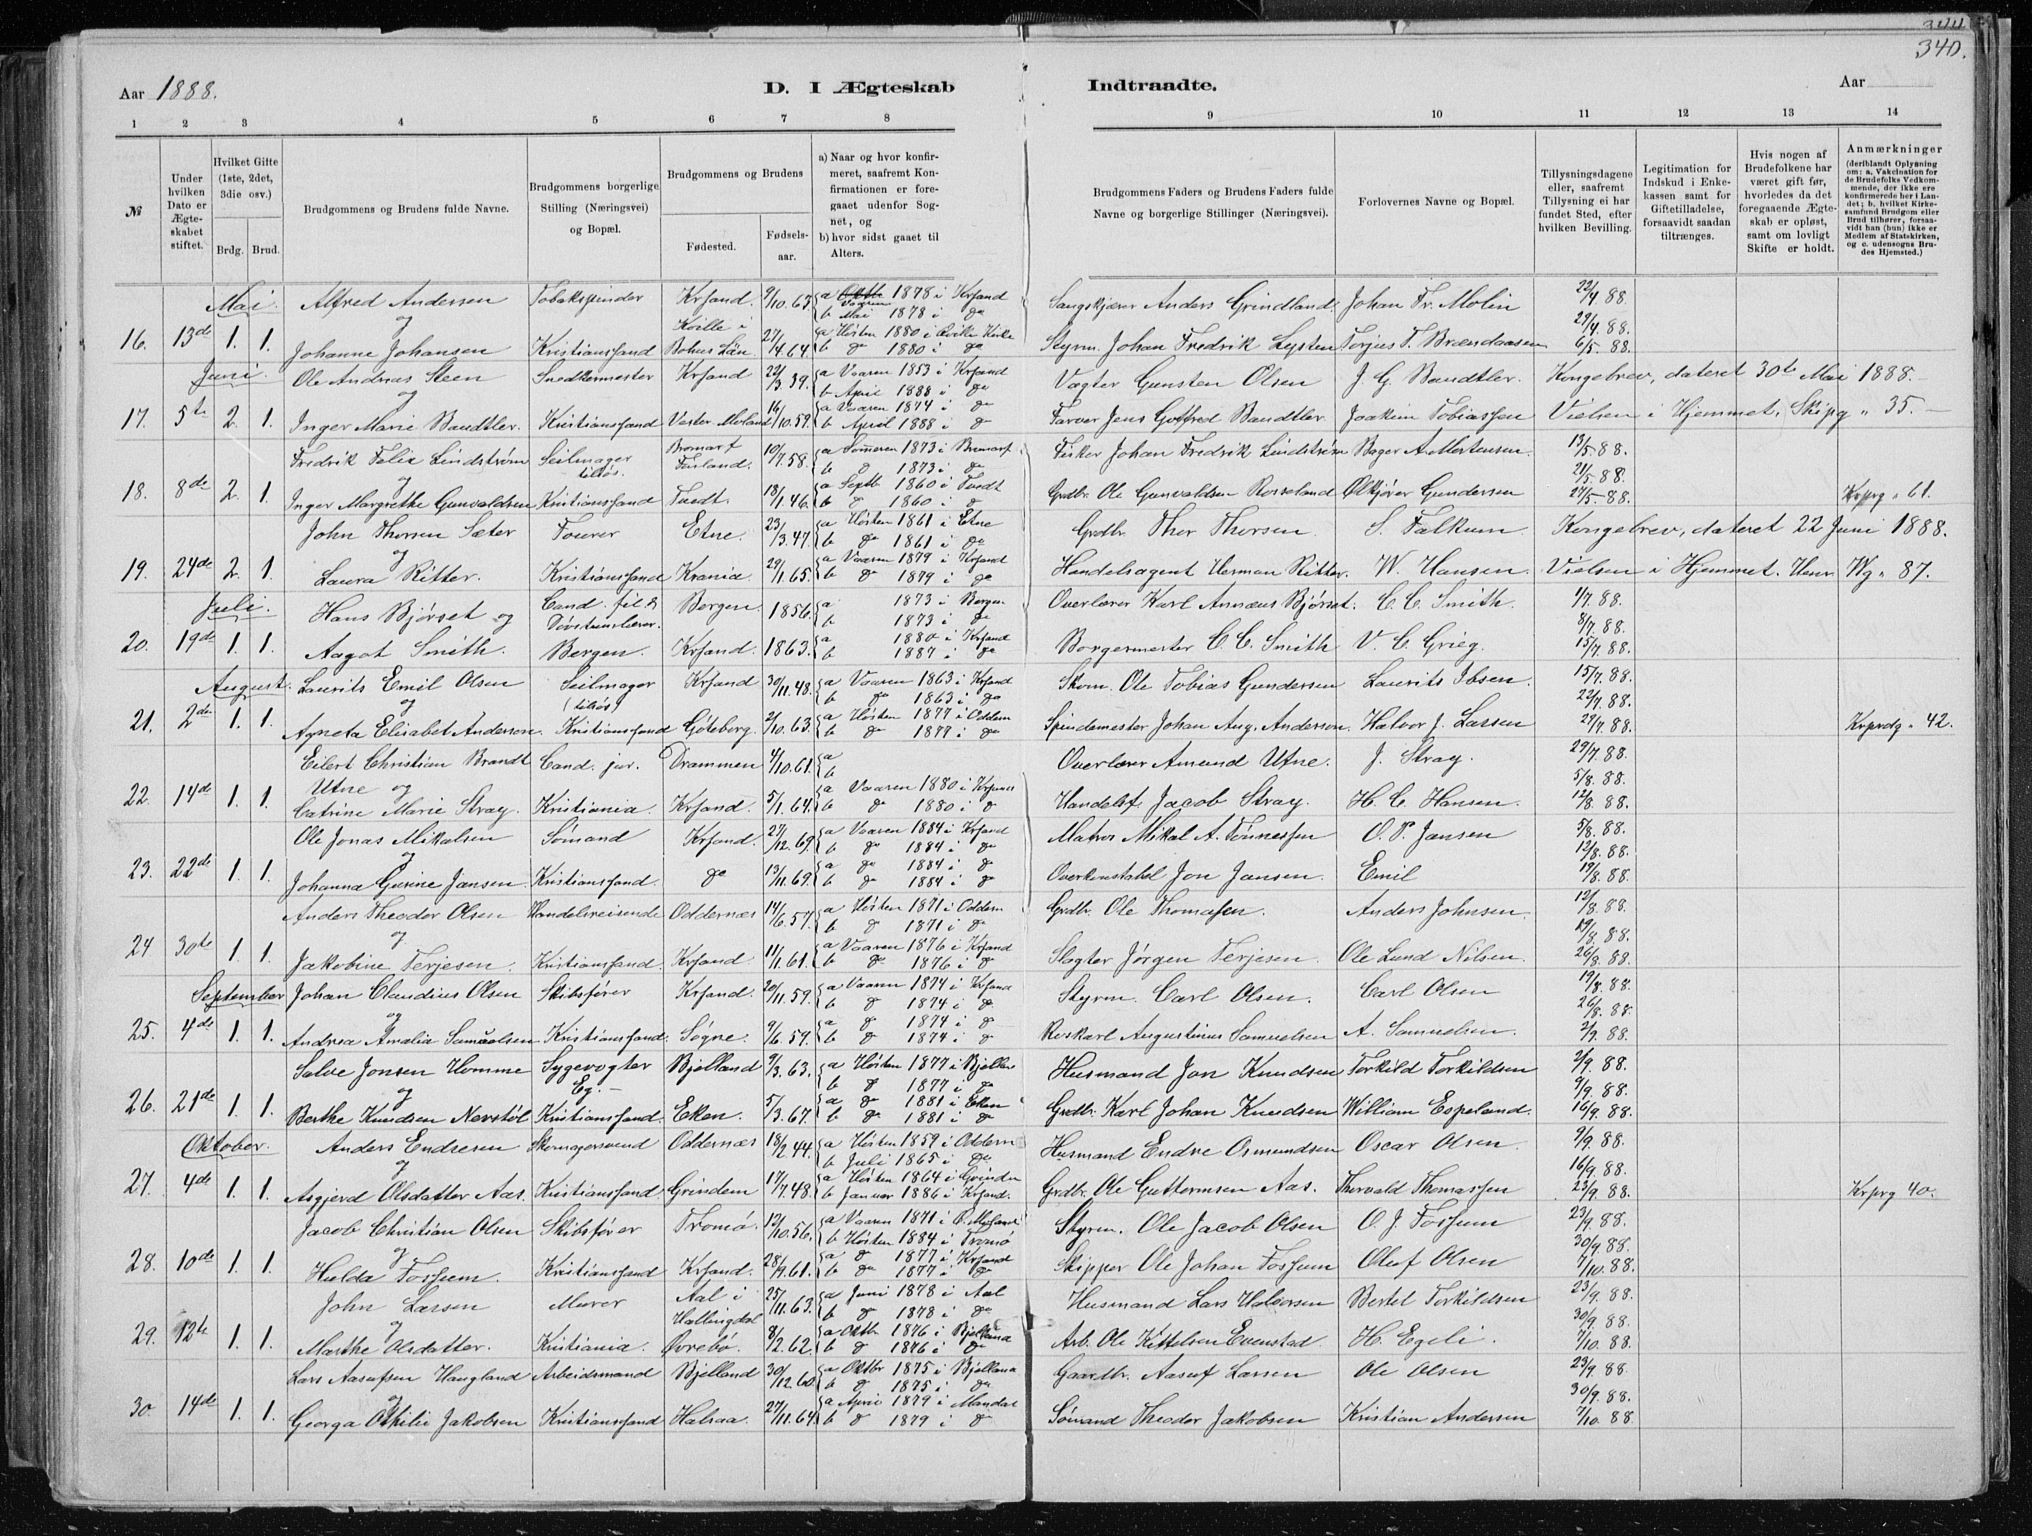 344
340.
Aar 1888.
D. I Ægteskab Indtraadte.
Aar
1 2 3 4 5 6 7 8 9 10 11 12 13 14
№
Under hvilken Dato er Ægteskabet stiftet.
Hvilket Gifte (1ste, 2det, 3die osv.)
Brdg. Brud.
Brudgommens og Brudens fulde Navne.
Brudgommens borgerlige Stilling (Næringsvei) og Bopæl.
Brudgommens og Brudens
Fødested. Fødselsaar.
a) Naar og hvor konfirmeret, saafremt Konfirmationen er foregaaet udenfor Sognet, og
b) hvor sidst gaaet til Alters.
Brudgommens Faders og Brudens Faders fulde Navne og borgerlige Stillinger (Næringsvei).
Forlovernes Navne og Bopæl.
Tillysningsdagene eller, saafremt Tillysning ei har fundet Sted, efter hvilken Bevilling.
Legitimation for Indskud i Enkekassen samt for Giftetilladelse, forsaavidt saadan tiltrænges.
Hvis nogen af Brudefolkene har været gift før, hvorledes da det foregaaende Ægteskab er opløst, samt om lovligt Skifte er holdt.
Anmærkninger (deriblandt Oplysning om: a, Vakcination for de Brudefolks Vedkommende, der ikke ere konfirmerede her i Landet; b, hvilket Kirkesamfund Brudgom eller Brud tilhører, forsaavidt han (hun) ikke er Medlem af Statskirken, og c. udensogns Brudes Hjemsted.)
Mai Alfred Andersen Tobakspinder Krsand. 9/10.63. a Oktbr Vaaren 1878 i Krsand b Mai 1878 i do Sangskjærer Anders Grindland. Johan Fr. Molin 22/4 88.
og 29/4.88.
16. 13de 1. 1. Johanne Johansen Kristianssand Kville i Bohus Län 27/4.64. a Høsten 1880 i Qville Kirke b do 1880 i do Styrm. Johan Fredrik Lysten Torjus T. Brændaasen 6/5.88.
Juni. Ole Andreas Steen Snedkermester Krsand 22/3.39. a Vaaren 1853 i Krsand b April 1888 i do Vægter Gunsten Olsen J. G. Bandtler. Kongebrev, dateret 30te Mai 1888.
og
17. 5te 2. 1. Inger Marie Bandtler. Kristianssand Vester Moland 16/10.59. a Vaaren 1874 i do b April 1888 i do Farver Jens Gotfred Bandtler Joakim Tobiassen Vielsen i Hjemmet. Skipg " 35.
Fredrik Felix Lindstrøm Seilmager tilhos. Bromarf Finland. 10/7.58. a Sommeren 1873 i Bromarf b do 1873 i do Fisker Johan Fredrik Lindstrøm Bager A. Mortensen. 13/5.88.
og 21/5.88.
18. 8de 2. 1. Inger Margrethe Gunvaldsen Kristianssand Tvedt. 18/1.46. a Septb 1860 i Tvedt b do 1860 i do Grdbr. Ole Gunvaldsen Rosseland Olkjører Gundersen 27/5.88. Krprg " 61.
John Thorsen Sæter Tourer Etne. 23/3.47. a Høsten 1861 i Etne b do 1861 i do Grdbr Thor Thorsen. S. Falkum Kongebrev, dateret 22 Juni 1888.
og
19. 24de 2. 1. Laura Ritter. Kristianssand Krania. 29/1.65. a Vaaren 1879 i Krsand b do 1879 i do Handelsagent Herman Ritter. W. Hansen. Vielsen i Hjemmet. Henr Wg " 87.
Juli. Hans Bjørset og Cand. fil. & Døvstumlærer. Bergen. 1856. a 1873 i Bergen b 1873 i do Overlærer Karl Annæus Bjørset. C. C. Smith. 1/7.88.
8/7.88.
20. 19de 1. 1. Aagot Smith. Bergen. Krsand. 1863. a 1880 i Krsand b 1887 i do Borgermester C. C. Smith V. C. Grieg. 15/7.88.
August. Laurits Emil Olsen Seilmager (tilhos) Krsand 30/11.48. a Vaaren 1863 i Krsand b do 1863 i do Skom. Ole Tobias Gundersen Laurits Ibsen. 15/7.88.
og 22/7.88.
21. 2den 1. 1. Agneta Elisabet Anderson. Kristianssand Göteborg. 2/10.63. a Høsten 1877 i Oddern b do 1877 i do Spindemester Johan Aug. Anderson. Halvor J. Larsen 29/7.88. Krprdg " 42.
Eilert Christian Brandt Utne og Cand. jur. Drammen 4/10.61. a b Overlærer Amund Utne. J. Stray. 29/7.88.
5/8.88.
22. 14de 1. 1. Catrine Marie Stray. Kristiania. Krsand. 5/1.64. a Vaaren 1880 i Krsand b do 1880 i do Handelsf. Jacob Stray. H. C. Hansen. 12/8.88.
Ole Jonas Mikalsen Sømand Krsand. 27/12.69. a Vaaren 1884 i Krsand b do 1884 i do Matros Mikal A. Tønnessen O. P. Jansen 5/8.88.
og 12/8.88.
23. 22de 1. 1. Johanna Gurine Jansen. Kristianssand. do 13/11.69. a do 1884 i do b do 1884 i do Overkonstabel Jon Jansen. Emil 19/8.88.
Anders Theodor Olsen Handelsreisende Oddernæs 14/6.57. a Høsten 1871 i Oddern b do 1871 i do Grdbr. Ole Thomassen. Anders Johnsen. 12/8.88.
og 19/8.88.
24 30te 1. 1. Jakobine Terjesen. Kristianssand. Krsand. 11/1.61. a Vaaren 1876 i Krsand b do 1876 i do Slagter Jørgen Terjesen. Ole Lund Nilsen. 26/8.88.
September Johan Claudius Olsen Skibsfører Krsand. 20/11.59. a Vaaren 1874 i Krsand b do 1874 i do Styrm. Carl Olsen. Carl Olsen 19/8.88.
og 26/8.88.
25. 4de 1. 1. Andrea Amalia Samuelsen Kristianssand. Søgne. 9/6.59. a do 1874 i do b do 1874 i do Reskarl Augustinus Samuelsen A. Samuelsen. 2/9.88.
Salve Jonsen Homme Sygevogter Eg. Bjelland 7/3.63. a Høsten 1877 i Bjellan b do 1877 i do Husmand Jon Knudsen Torkild Torkildsen 2/9.88.
og 9/9.88.
26. 21de 1. 1. Berthe Knudsen Nevstøl Kristianssand. Eken. 5/3.67. a do 1881 i Eken b do 1881 i do Grdbr. Karl Johan Knudsen William Espeland. 16/9.88.
Oktober. Anders Endresen Skomagersvend Oddernæs 18/2.44. a Høsten 1859 i Oddern b Juli 1865 i do Husmand Endre Osmundsen Oscar Olsen. 9/9.88.
og 16/9.88.
27. 4de 1. 1. Asgjerd Olsdatter Aas. Kristianssand. Grindem 17/7.48. a Høsten 1864 i Grindm b Januar 1886 i Krsand. Grdbr. Ole Guttormsen Aas. Thorvald Thomassen 23/9.88. Krprg 40.
Jacob Christian Olsen Skibsfører Tromø 13/10.56. a Vaaren 1871 i Ø. Moland b Høsten 1884 i Tromø Styrm. Ole Jacob Olsen O. J. Fossum 23/9.88.
og 30/9.88.
28. 10de 1. 1. Hulda Fossum. Kristianssand Krsand. 28/9.61. a do 1877 i Krsand b do 1877 i do Skipper Ole Johan Fossum Oluf Olsen 7/10.88.
John Larsen Murer Aal i Hallingdal 25/11.63. a Juni 1878 i Aal b do 1878 i do Husmand Lars Halvorsen Bertel Torkildsen 23/9.88.
og 30/9.88.
29. 12te 1. 1. Marthe Olsdatter. Kristiania. Øvrebø. 8/2.62. a Oktbr 1876 i Bjelland b do 1876 i do Arb. Ole Kittelsen Evenstad. H. Egeli. 7/10.88.
Lars Aasufsen Haugland Arbeidsmand Bjelland 30/12.60. a Oktbr 1875 i Bjelland b do 1875 i do Gaardbr. Aasuf Larsen Ole Olsen 23/9.88.
og 30/9.88.
30. 14de 1. 1. Georga Othilie Jakobsen Kristianssand Halsaa. 27/11.64. a April 1879 i Mandal b do 1879 i do Sømand Theodor Jakobsen Kristian Andersen 7/10.88.